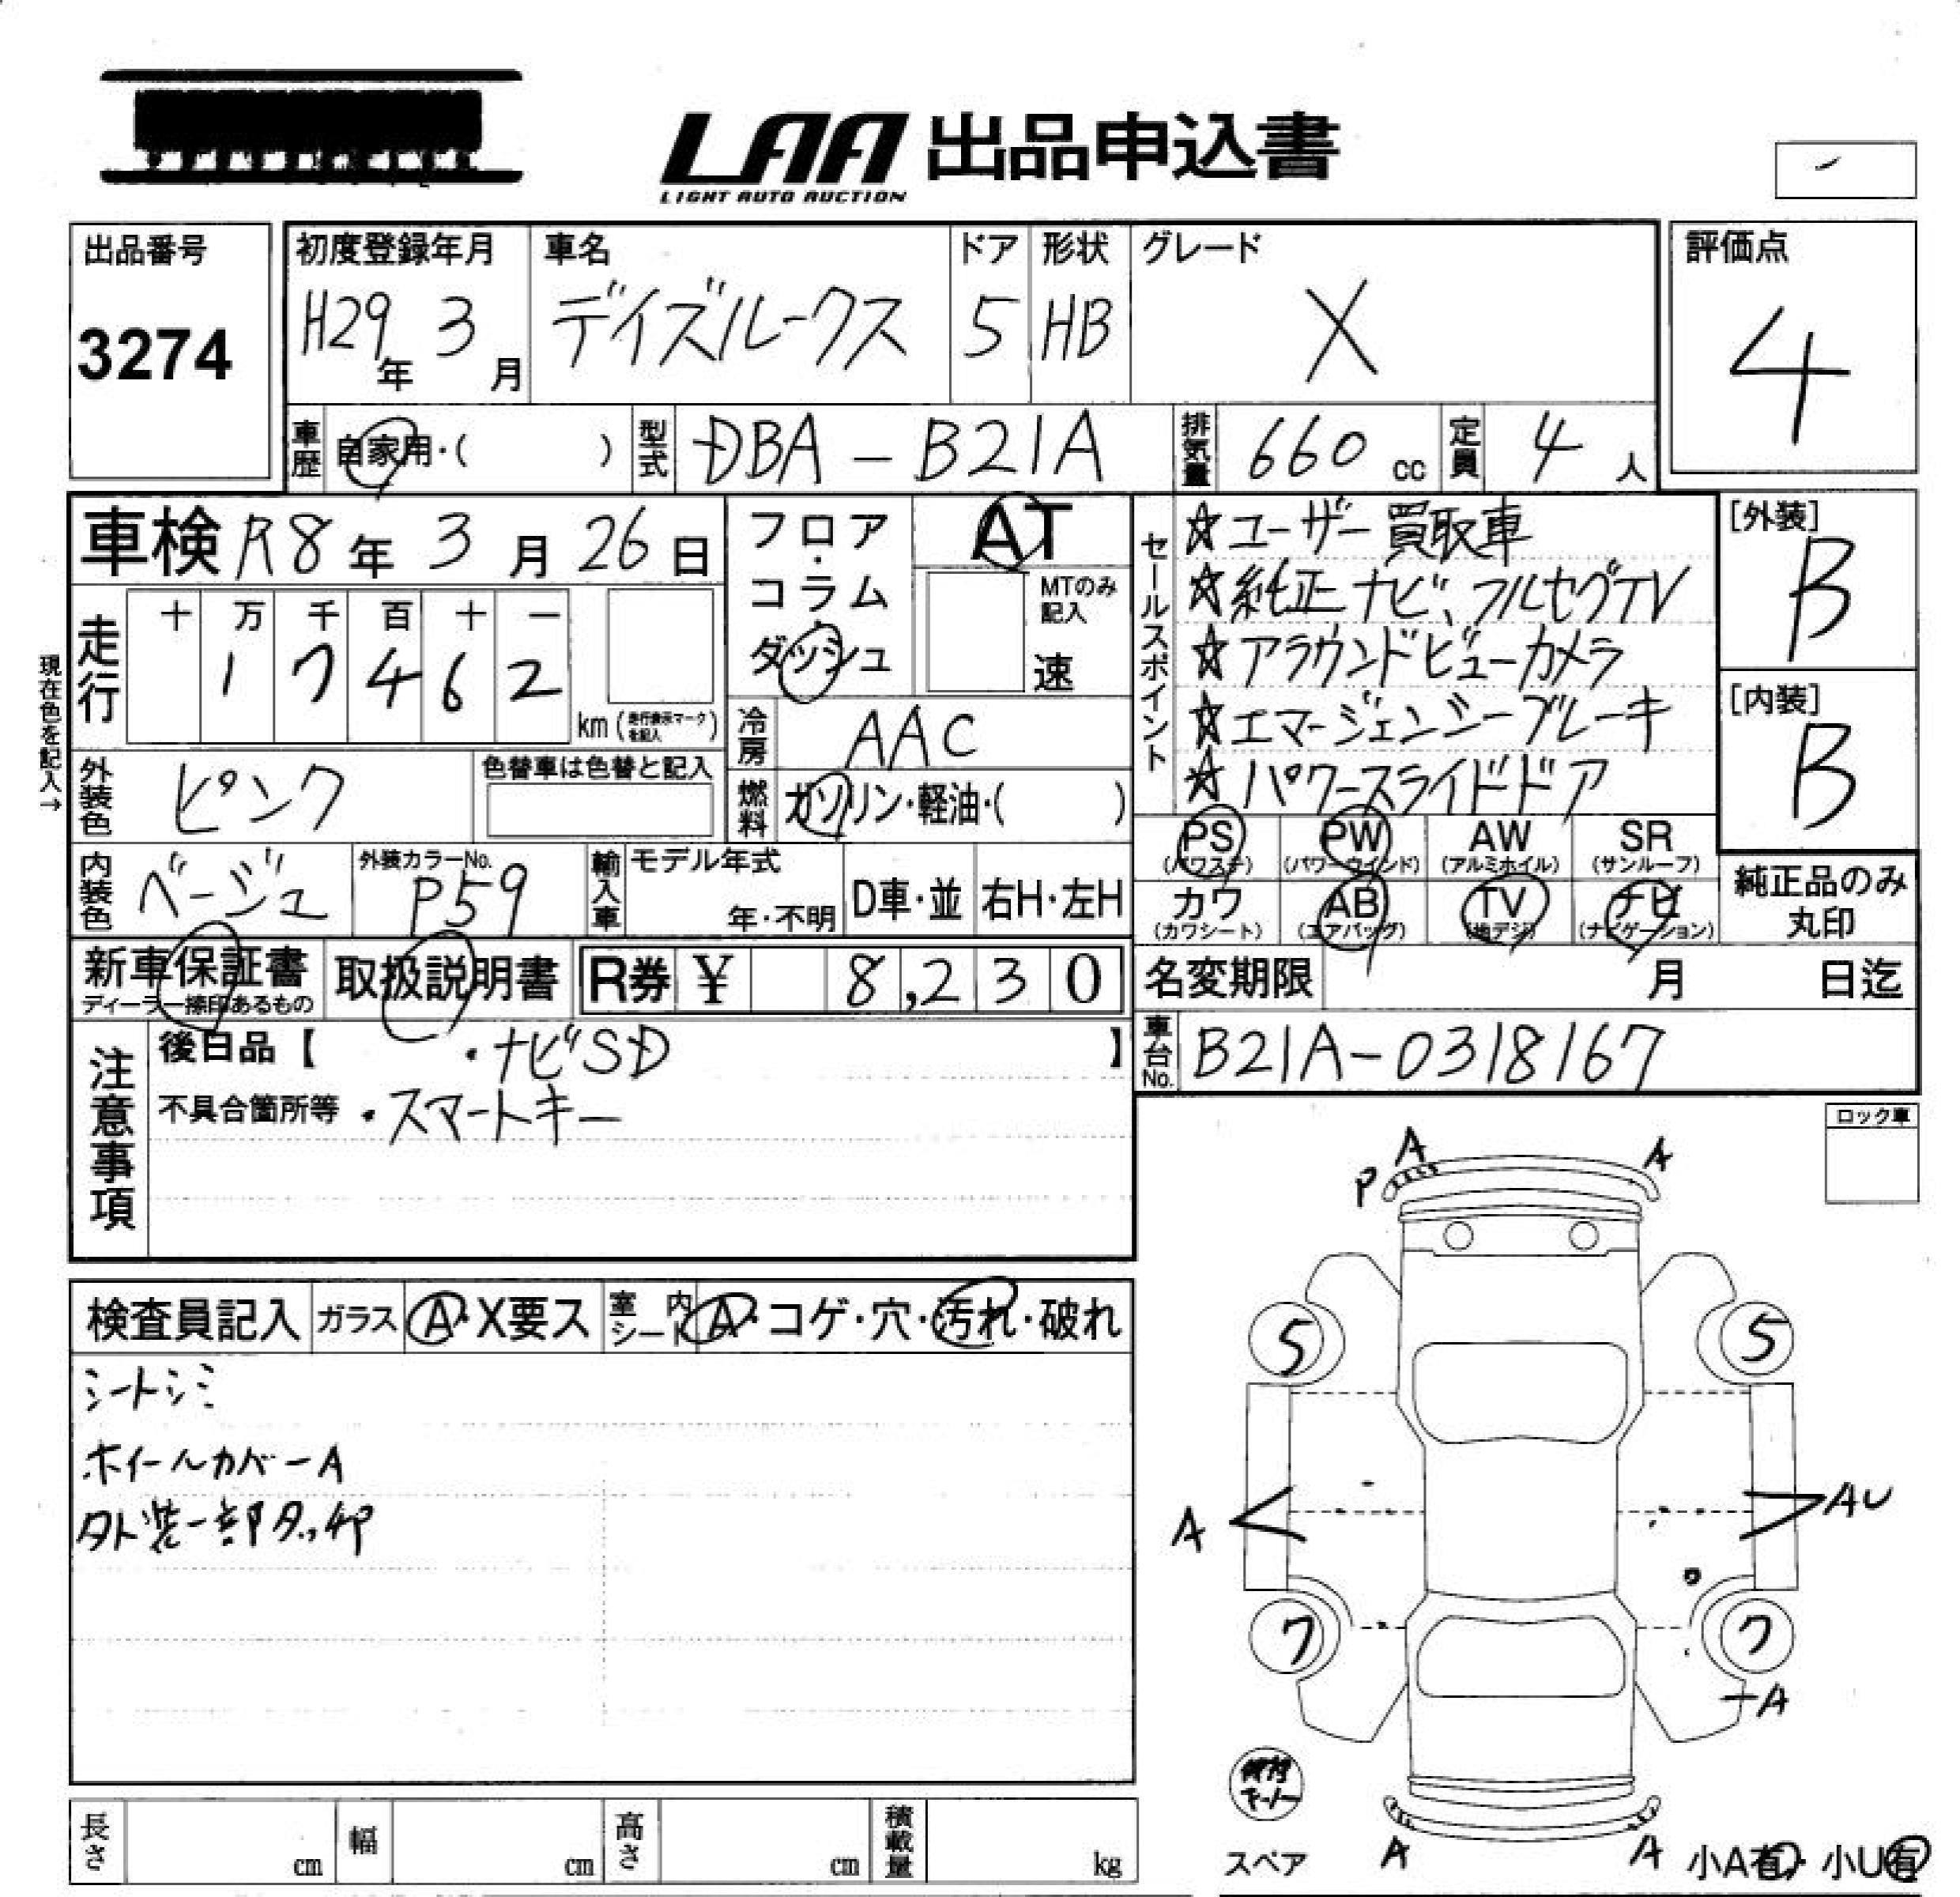 LAA 出品申込書
LIGHT AUTO AUCTION
出品番号
3274
初度登録年月
H29年 3月
車名
デイズルークス
ドア
5
形状
HB
グレード
X
評価点
4
車歴 自家用・( )
型式 DBA-B21A
排気量 660 cc
定員 4人
車検 R8年 3月 26日
フロア・コラム・ダッシュ
AT
MTのみ記入
速
セールスポイント
☆ユーザー買取車
☆純正ナビ、フルセグTV
☆アラウンドビューカメラ
☆エマージェンシーブレーキ
☆パワースライドドア
[外装]
B
[内装]
B
現在色を記入→
走行
十 万 千 百 十 一
1 7 4 6 2
km(走行表示マークを記入)
冷房 AAC
外装色 ピンク
色替車は色替と記入
燃料 ガソリン・軽油・( )
内装色 ベージュ
外装カラーNo.
P59
輸入車 モデル年式
年・不明
D車・並
右H・左H
PS (パワステ)
PW (パワーウインド)
AW (アルミホイル)
SR (サンルーフ)
カワ (カワシート)
AB (エアバッグ)
TV (地デジ)
ナビ (ナビゲーション)
純正品のみ丸印
新車保証書
ディーラー捺印あるもの
取扱説明書
R券 ¥ 8,230
名変期限 月 日迄
車台No. B21A-0318167
注意事項
後日品【 ・ナビSD 】
不具合箇所等 ・スマートキー
ロック車
検査員記入
ガラス A・X要ス
室内シート A・コゲ・穴・汚れ・破れ
シートシミ
ホイールカバーA
外装一部
A
P
A
5
5
A
AU
7
7
A
スペア
A
A
小A有・小U有
長さ cm
幅 cm
高さ cm
積載量 kg